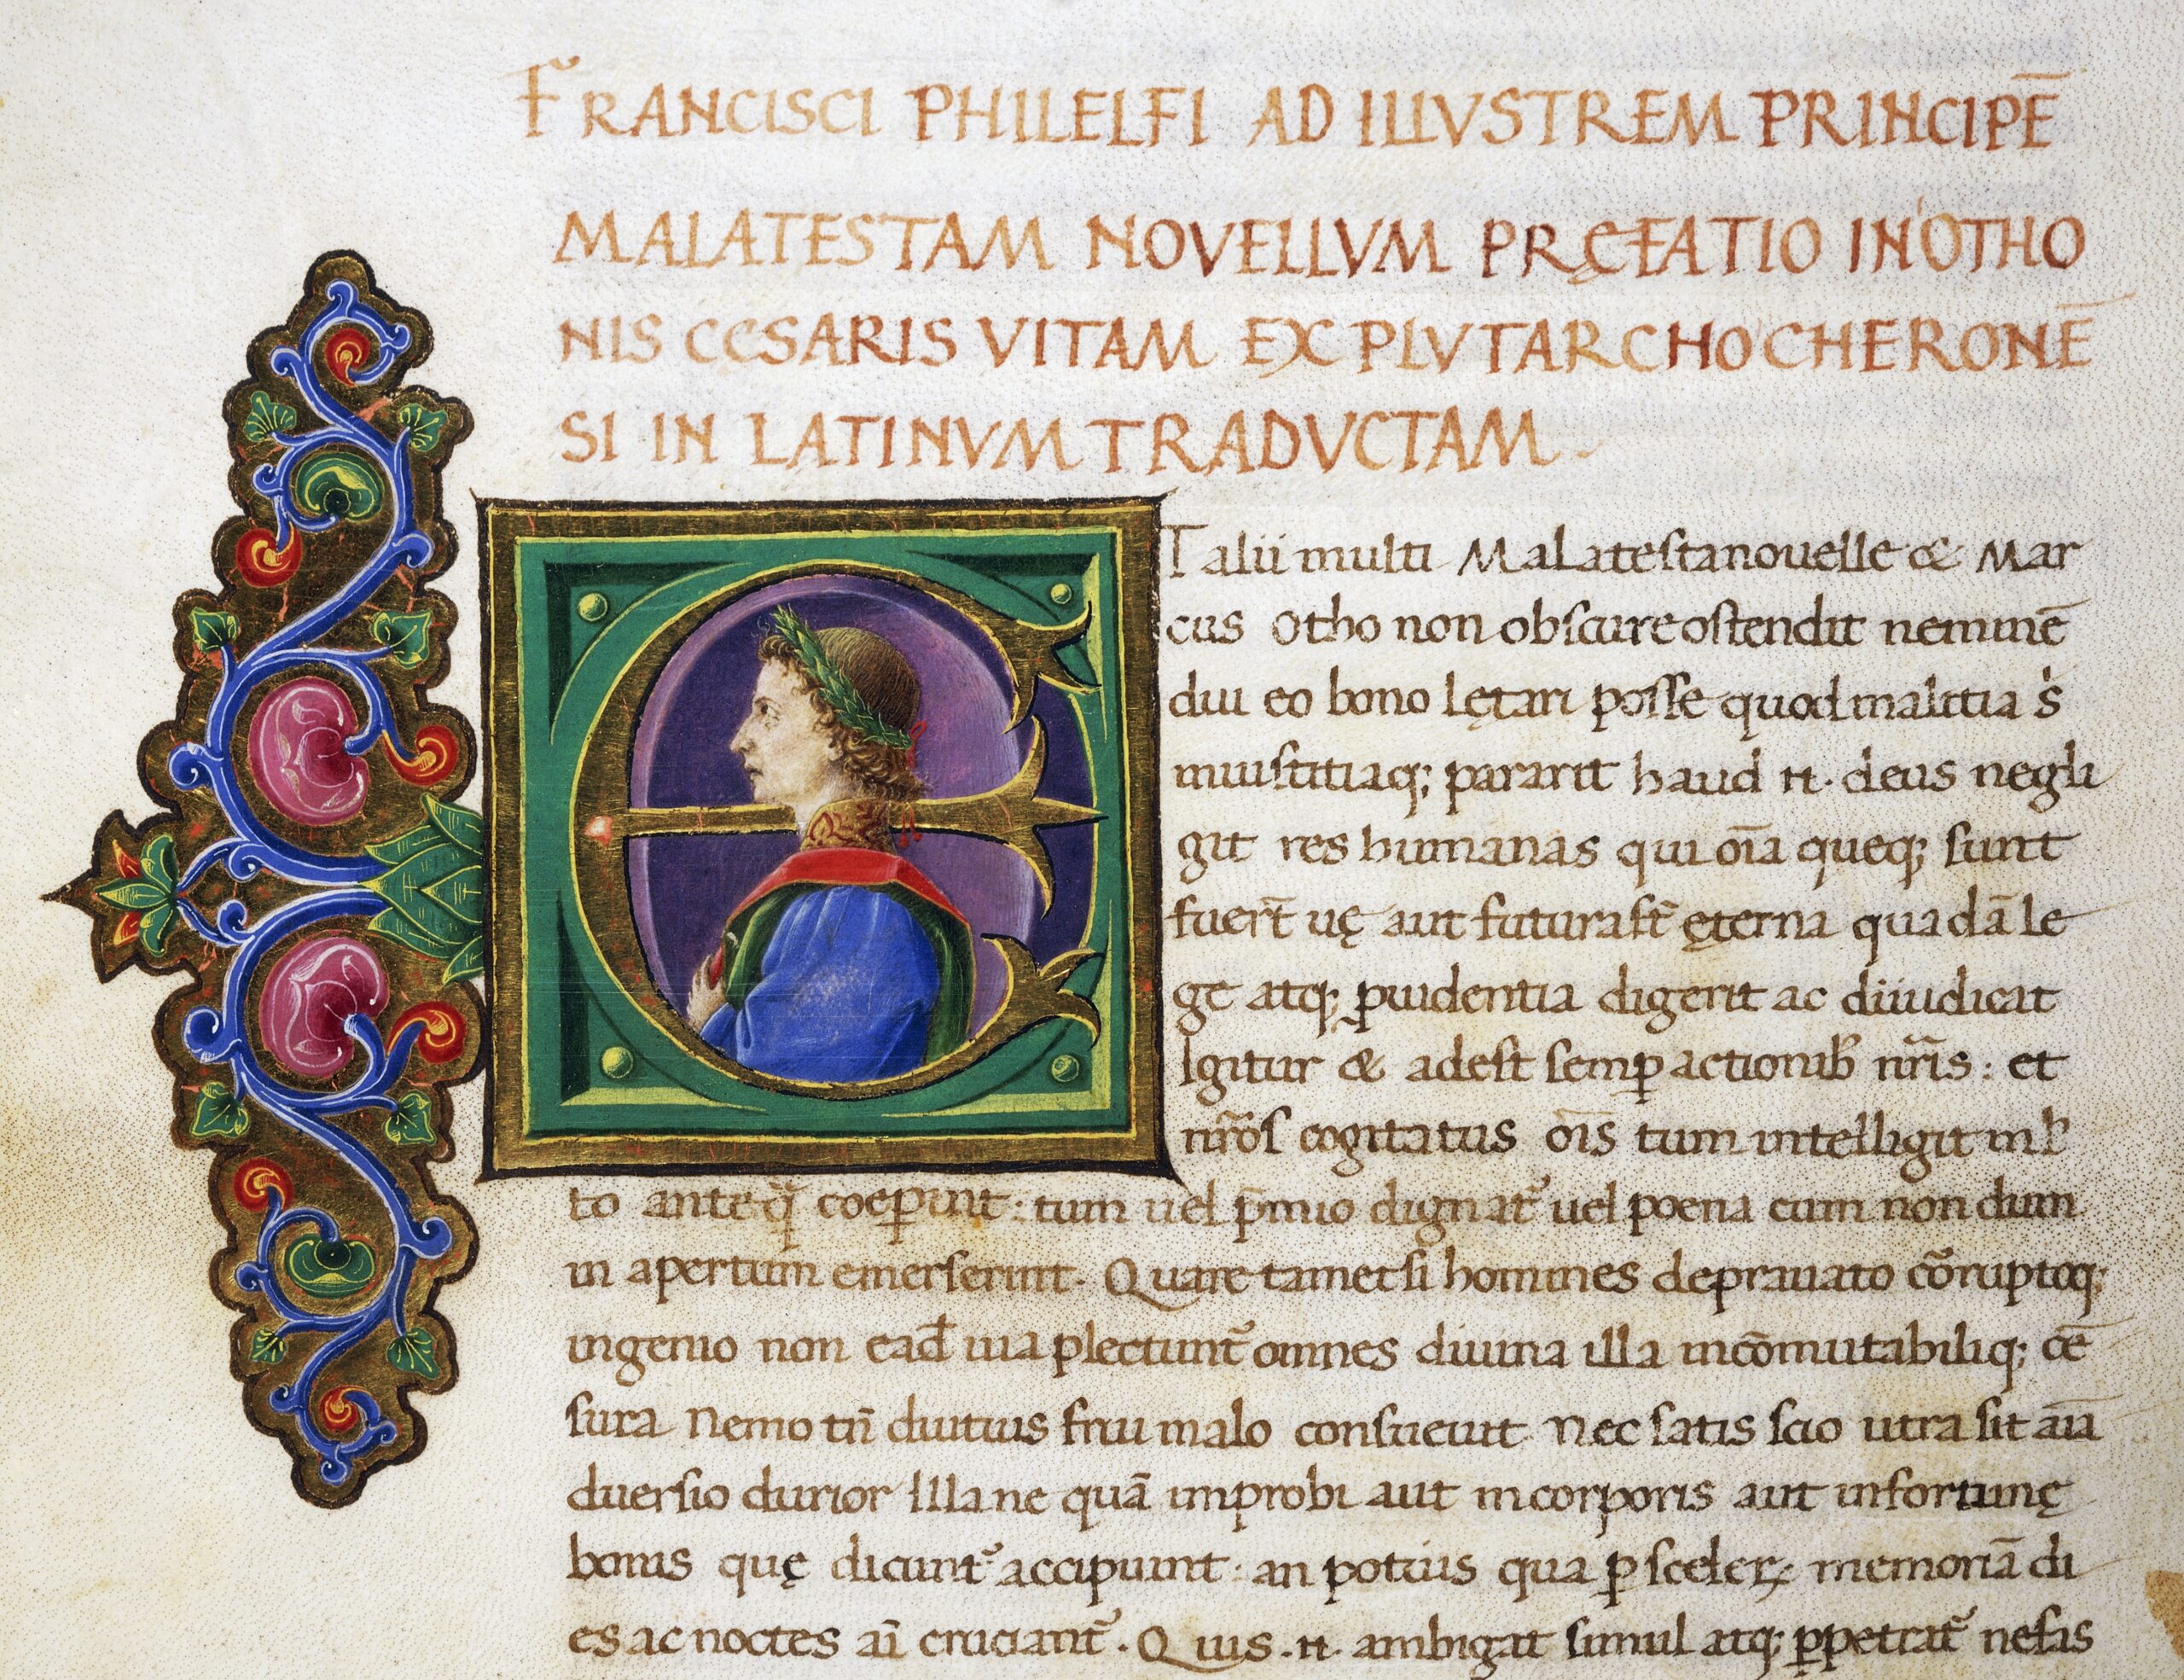 FRANCISCI PHILELFI AD ILLVSTREM PRINCIPĒ
MALATESTAM NOVELLVM PRĘFATIO IN OTHO
NIS CESARIS VITAM EX PLVTARCHO CHERONĒ
SI IN LATINVM TRADVCTAM.
E T alii multi Malatesta nouelle & Mar
cus Otho non obscure ostendit neminē
diu eo bono lętari posse quod malitia
iniustitiaq; pararit haud n. deus negli
git res humanas qui oīa queq; sunt
fuerūt uę aut futura sūt ęterna quadā le
ge atq; prouidentia digerit ac diiudicat
Igitur & adest semꝑ actionib; nr̄is : et
nr̄os cogitatus oīs tum intelligit ml̄
to anteq̄ coeꝑint : tum uel p̄mio dignat᷑ uel poena cum non dum
in apertum emerserint. Quare tametsi homines deprauato cōruptoq;
ingenio non eadē uia plectunt᷑ omnes diuina illa incōmutabiliq; cē
sura Nemo tn̄ diutius frui malo consueuit Nec satis scio utra sit aīa
duersio durior Illa ne quā improbi aut in corporis aut in fortunę
bonis quę dicunt᷑ accipiunt : an potius qua ꝑ sceleꝝ memoriā di
es ac noctes aī cruciant᷑. Quis .n. ambigat simul atq; ꝑpetrat᷑ nefas